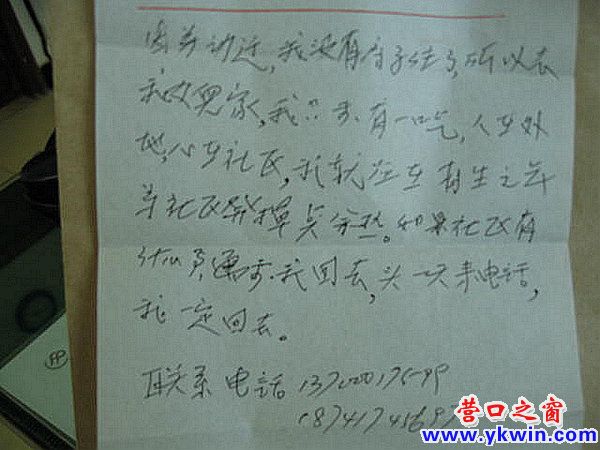 动迁,我没有房子住了,所以去
我女儿家,我只要有一口气,人在外
地,心在社区,我就应在有生之年
为社区发挥点余热。如果社区有
什么 需要我回去,头一天来电话,
我一定回去。
联系电话
营口之窗
www.ykwin.com